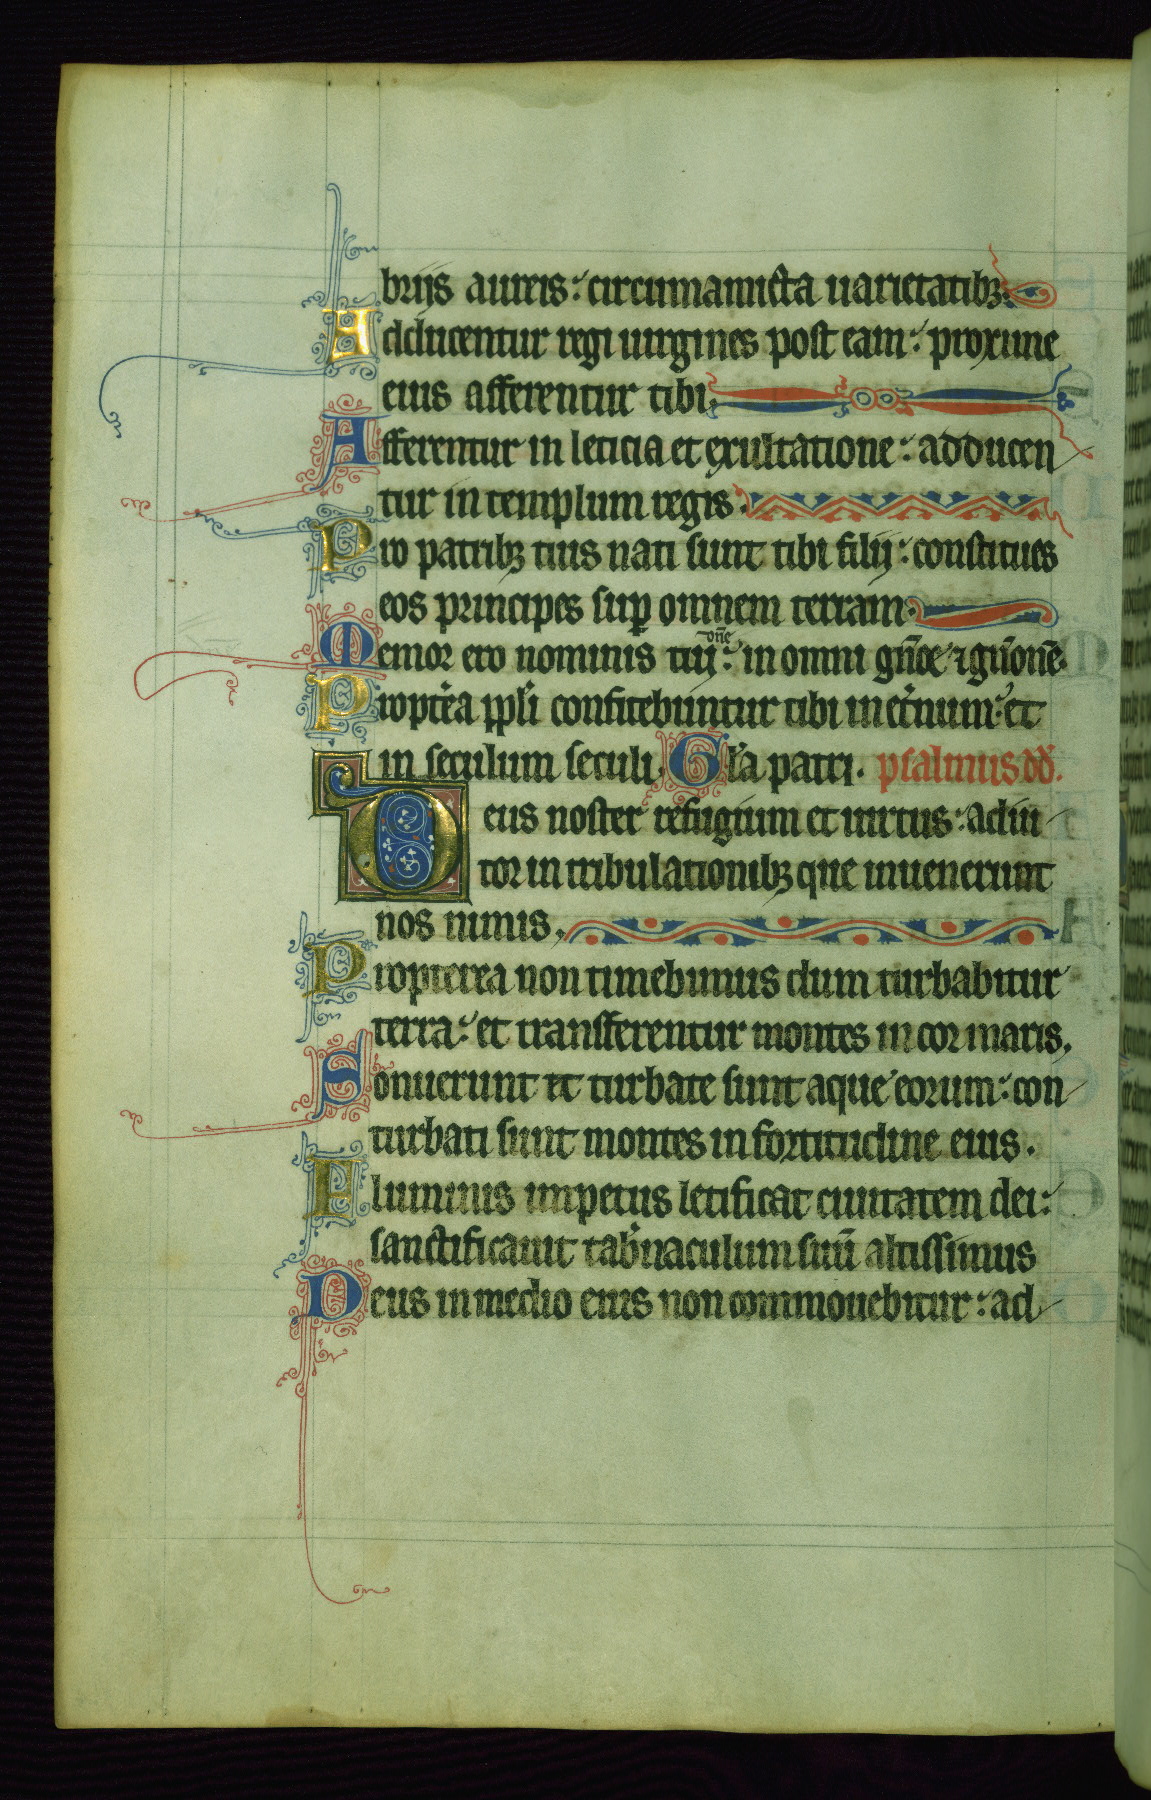 brijs aureis: circumamicta uarietatibꝫ.
Adducentur regi uirgines post eam: proxime
eius afferentur tibi.
Afferentur in leticia et exultatione: adducen
tur in templum regis.
Pro patribꝫ tuis nati sunt tibi filij: constitues
eos principes suꝑ omnem terram.
Memor ero nominis tui: in omni gñoe ⁊ gñonē. oñe
Propt̓ea ppl̓i confitebuntur tibi in et̓num: et
in seculum seculi. Gl̓a patri. psalmus dd̓.
Deus noster refugium et uirtus: adiu
tor in tribulationibꝫ que inuenerunt
nos nimis.
Propterea non timebimus dum turbabitur
terra: et transferentur montes in cor maris.
Sonuerunt et turbate sunt aque eorum: con
turbati sunt montes in fortitudine eius.
Fluminis impetus letificat ciuitatem dei:
sanctificauit tab̓naculum suū altissimus
Deus in medio eius non commouebitur: ad